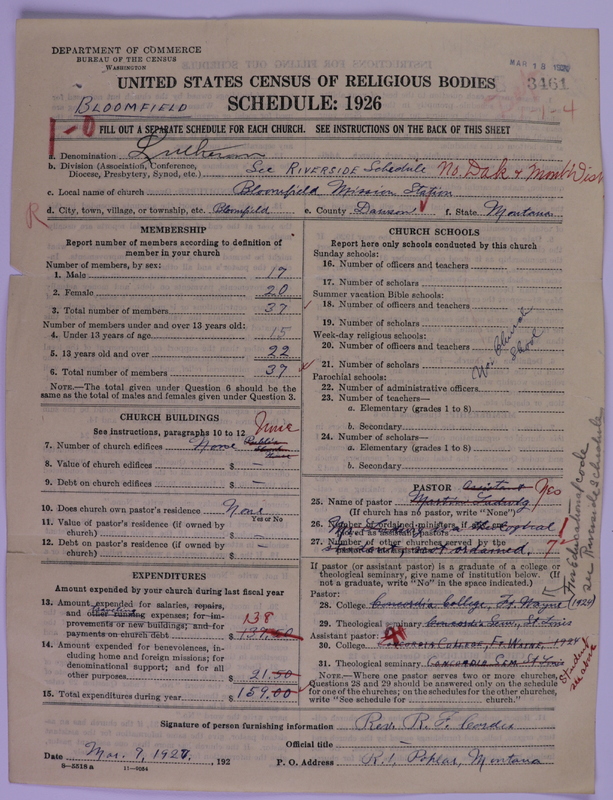 DEPARTMENT OF COMMERCE
BUREAU OF THE CENSUS
WASHINGTON
MAR 18 192
3461
UNITED STATES CENSUS OF RELIGIOUS BODIES
BLOOMFIELD
SCHEDULE: 1926
1-4
1-0
FILL OUT A SEPARATE SCHEDULE FOR EACH CHURCH. SEE INSTRUCTIONS ON THE BACK OF THIS SHEET
a. Denomination Lutheran
b. Division (Association, Conference,
Diocese, Presbytery, Synod, etc.) See RIVERSIDE Schedule No. Dak & Mont Dist
c. Local name of church Bloomfield Mission Station
R
d. City, town, village, or township, etc. Bloomfield e. County Dawson f. State Montana
MEMBERSHIP
Report number of members according to definition of
member in your church
Number of members, by sex:
1. Male 17
2. Female 20
3. Total number of members 37
Number of members under and over 13 years old:
4. Under 13 years of age 15
5. 13 years old and over 22
6. Total number of members 37
NOTE.—The total given under Question 6 should be the
same as the total of males and females given under Question 3.
CHURCH BUILDINGS
See instructions, paragraphs 10 to 12
7. Number of church edifices None
8. Value of church edifices $ —
9. Debt on church edifices $ —
10. Does church own pastor's residence? None
Yes or No
11. Value of pastor's residence (if owned by
church) $ —
12. Debt on pastor's residence (if owned by
church) $ —
EXPENDITURES
Amount expended by your church during last fiscal year
13. Amount expended for salaries, repairs,
and other running expenses; for im-
provements or new buildings; and for
payments on church debt $ 138
14. Amount expended for benevolences, in-
cluding home and foreign missions; for
denominational support; and for all
other purposes $ 21.50
15. Total expenditures during year $ 159.00
CHURCH SCHOOLS
Report here only schools conducted by this church
Sunday schools:
16. Number of officers and teachers
17. Number of scholars
Summer vacation Bible schools:
18. Number of officers and teachers
19. Number of scholars
Week-day religious schools:
20. Number of officers and teachers
21. Number of scholars
No Church
School
Parochial schools:
22. Number of administrative officers
23. Number of teachers—
a. Elementary (grades 1 to 8)
b. Secondary
24. Number of scholars—
a. Elementary (grades 1 to 8)
b. Secondary
PASTOR Assistant
25. Name of pastor Martin
(If church has no pastor, write "None")
26. Number of ordained ministers, if any, em-
ployed as assistant pastors 1
27. Number of other churches served by the
not ordained. 7
If pastor (or assistant pastor) is a graduate of a college or
theological seminary, give name of institution below. (If
not a graduate, write "No" in the space indicated.)
Pastor:
28. College Concordia College, Ft. Wayne (1924)
29. Theological seminary Concordia Sem, St Louis
Assistant pastor:
30. College CONCORDIA COLLEGE, FT. WAYNE, 1924
31. Theological seminary CONCORDIA SEM. St Louis
NOTE.—Where one pastor serves two or more churches,
Questions 28 and 29 should be answered only on the schedule
for one of the churches; on the schedules for the other churches,
write "See schedule for church."
For Educational code
see Riverside Schedule
Student
see above
Signature of person furnishing information Rev. R. F. Cordes
Official title —
Date Mar. 9, 1927, 192 P. O. Address R. 1, Poplar, Montana
8—5518 a 11—9084